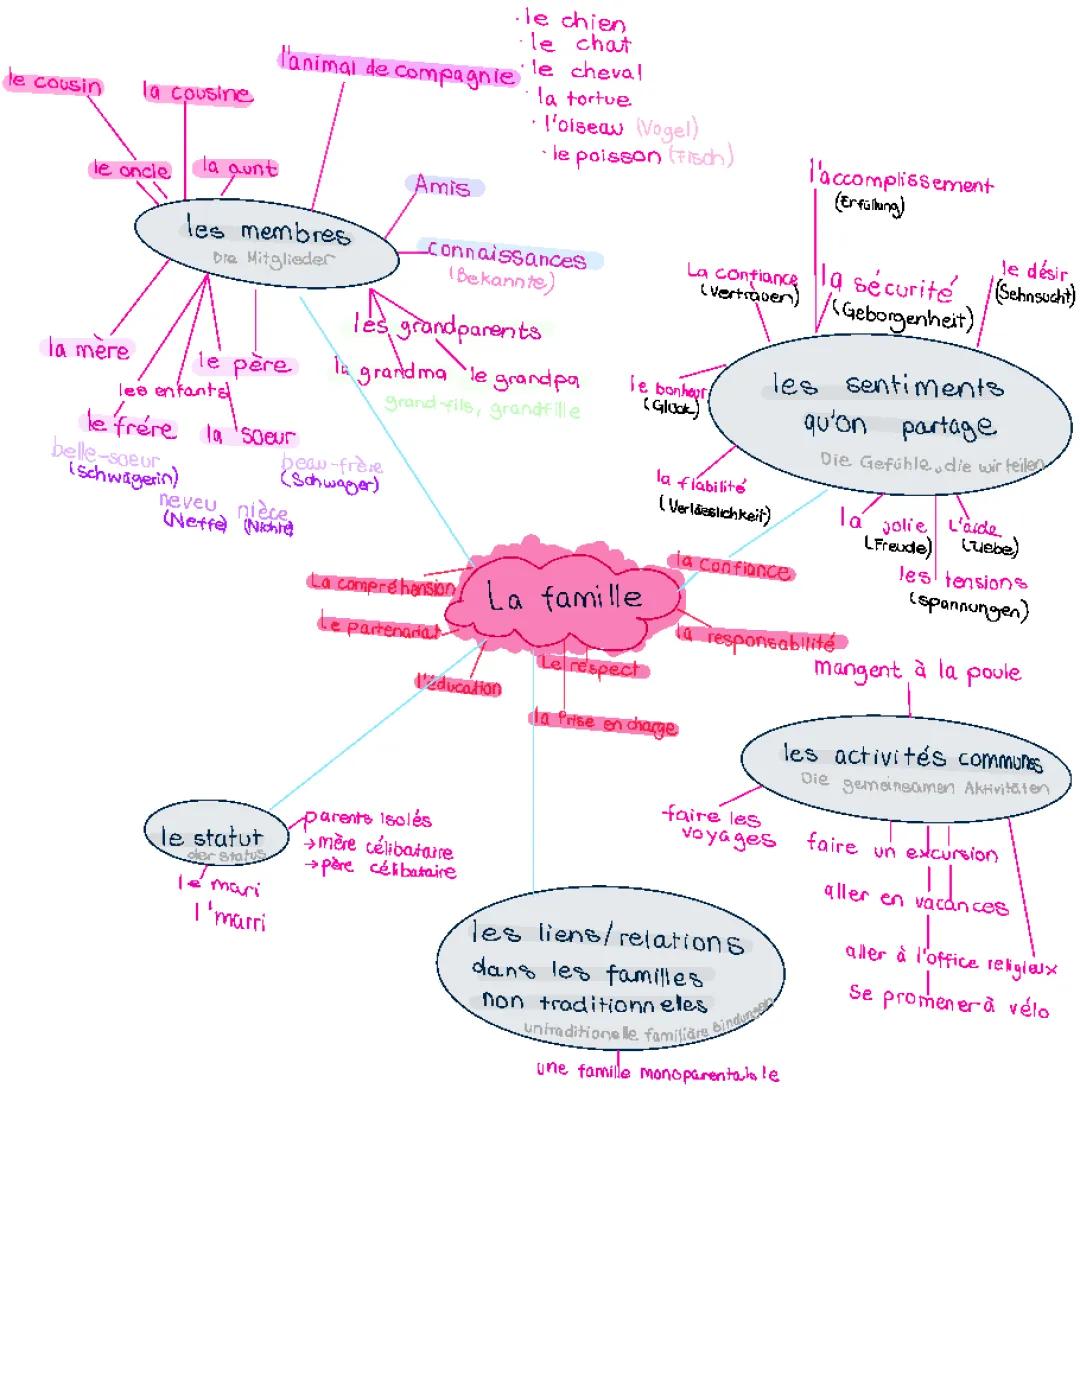 le cousin
la cousine
l'animal de compagnie
· le chien
· le chat
· le cheval
· la tortue
· l'oiseau (Vogel)
· le poisson (Fisch)
le oncle
la aunt
Amis
connaissances
(Bekannte)
les membres
Die Mitglieder
la mère
le père
les enfants
le frére
la soeur
belle-soeur
(Schwägerin)
beau-frère
(Schwager)
neveu
(Neffe)
nièce
(Nichte)
les grandparents
la grandma
le grandpa
grand-fils, grandfille
l'accomplissement
(Erfüllung)
La confiance
(Vertrauen)
la sécurité
(Geborgenheit)
le désir
(Sehnsucht)
le bonheur
(Glück)
les sentiments
qu'on partage
Die Gefühle, die wir teilen
la fiabilité
(Verlässlichkeit)
la jolie
(Freude)
L'aide
(Liebe)
les tensions
(spannungen)
La famille
La compréhension
Le partenariat
l'éducation
Le respect
la Prise en charge
la confiance
la responsabilité
mangent à la poule
les activités communes
Die gemeinsamen Aktivitäten
faire les
voyages
faire un excursion
aller en vacances
aller à l'office religieux
Se promener à vélo
le statut
der Status
parents isolés
→ mère célibataire
→ père célibataire
le mari
l'marri
les liens/relations
dans les familles
non traditionnelles
untraditionelle familiäre bindungen
une famille